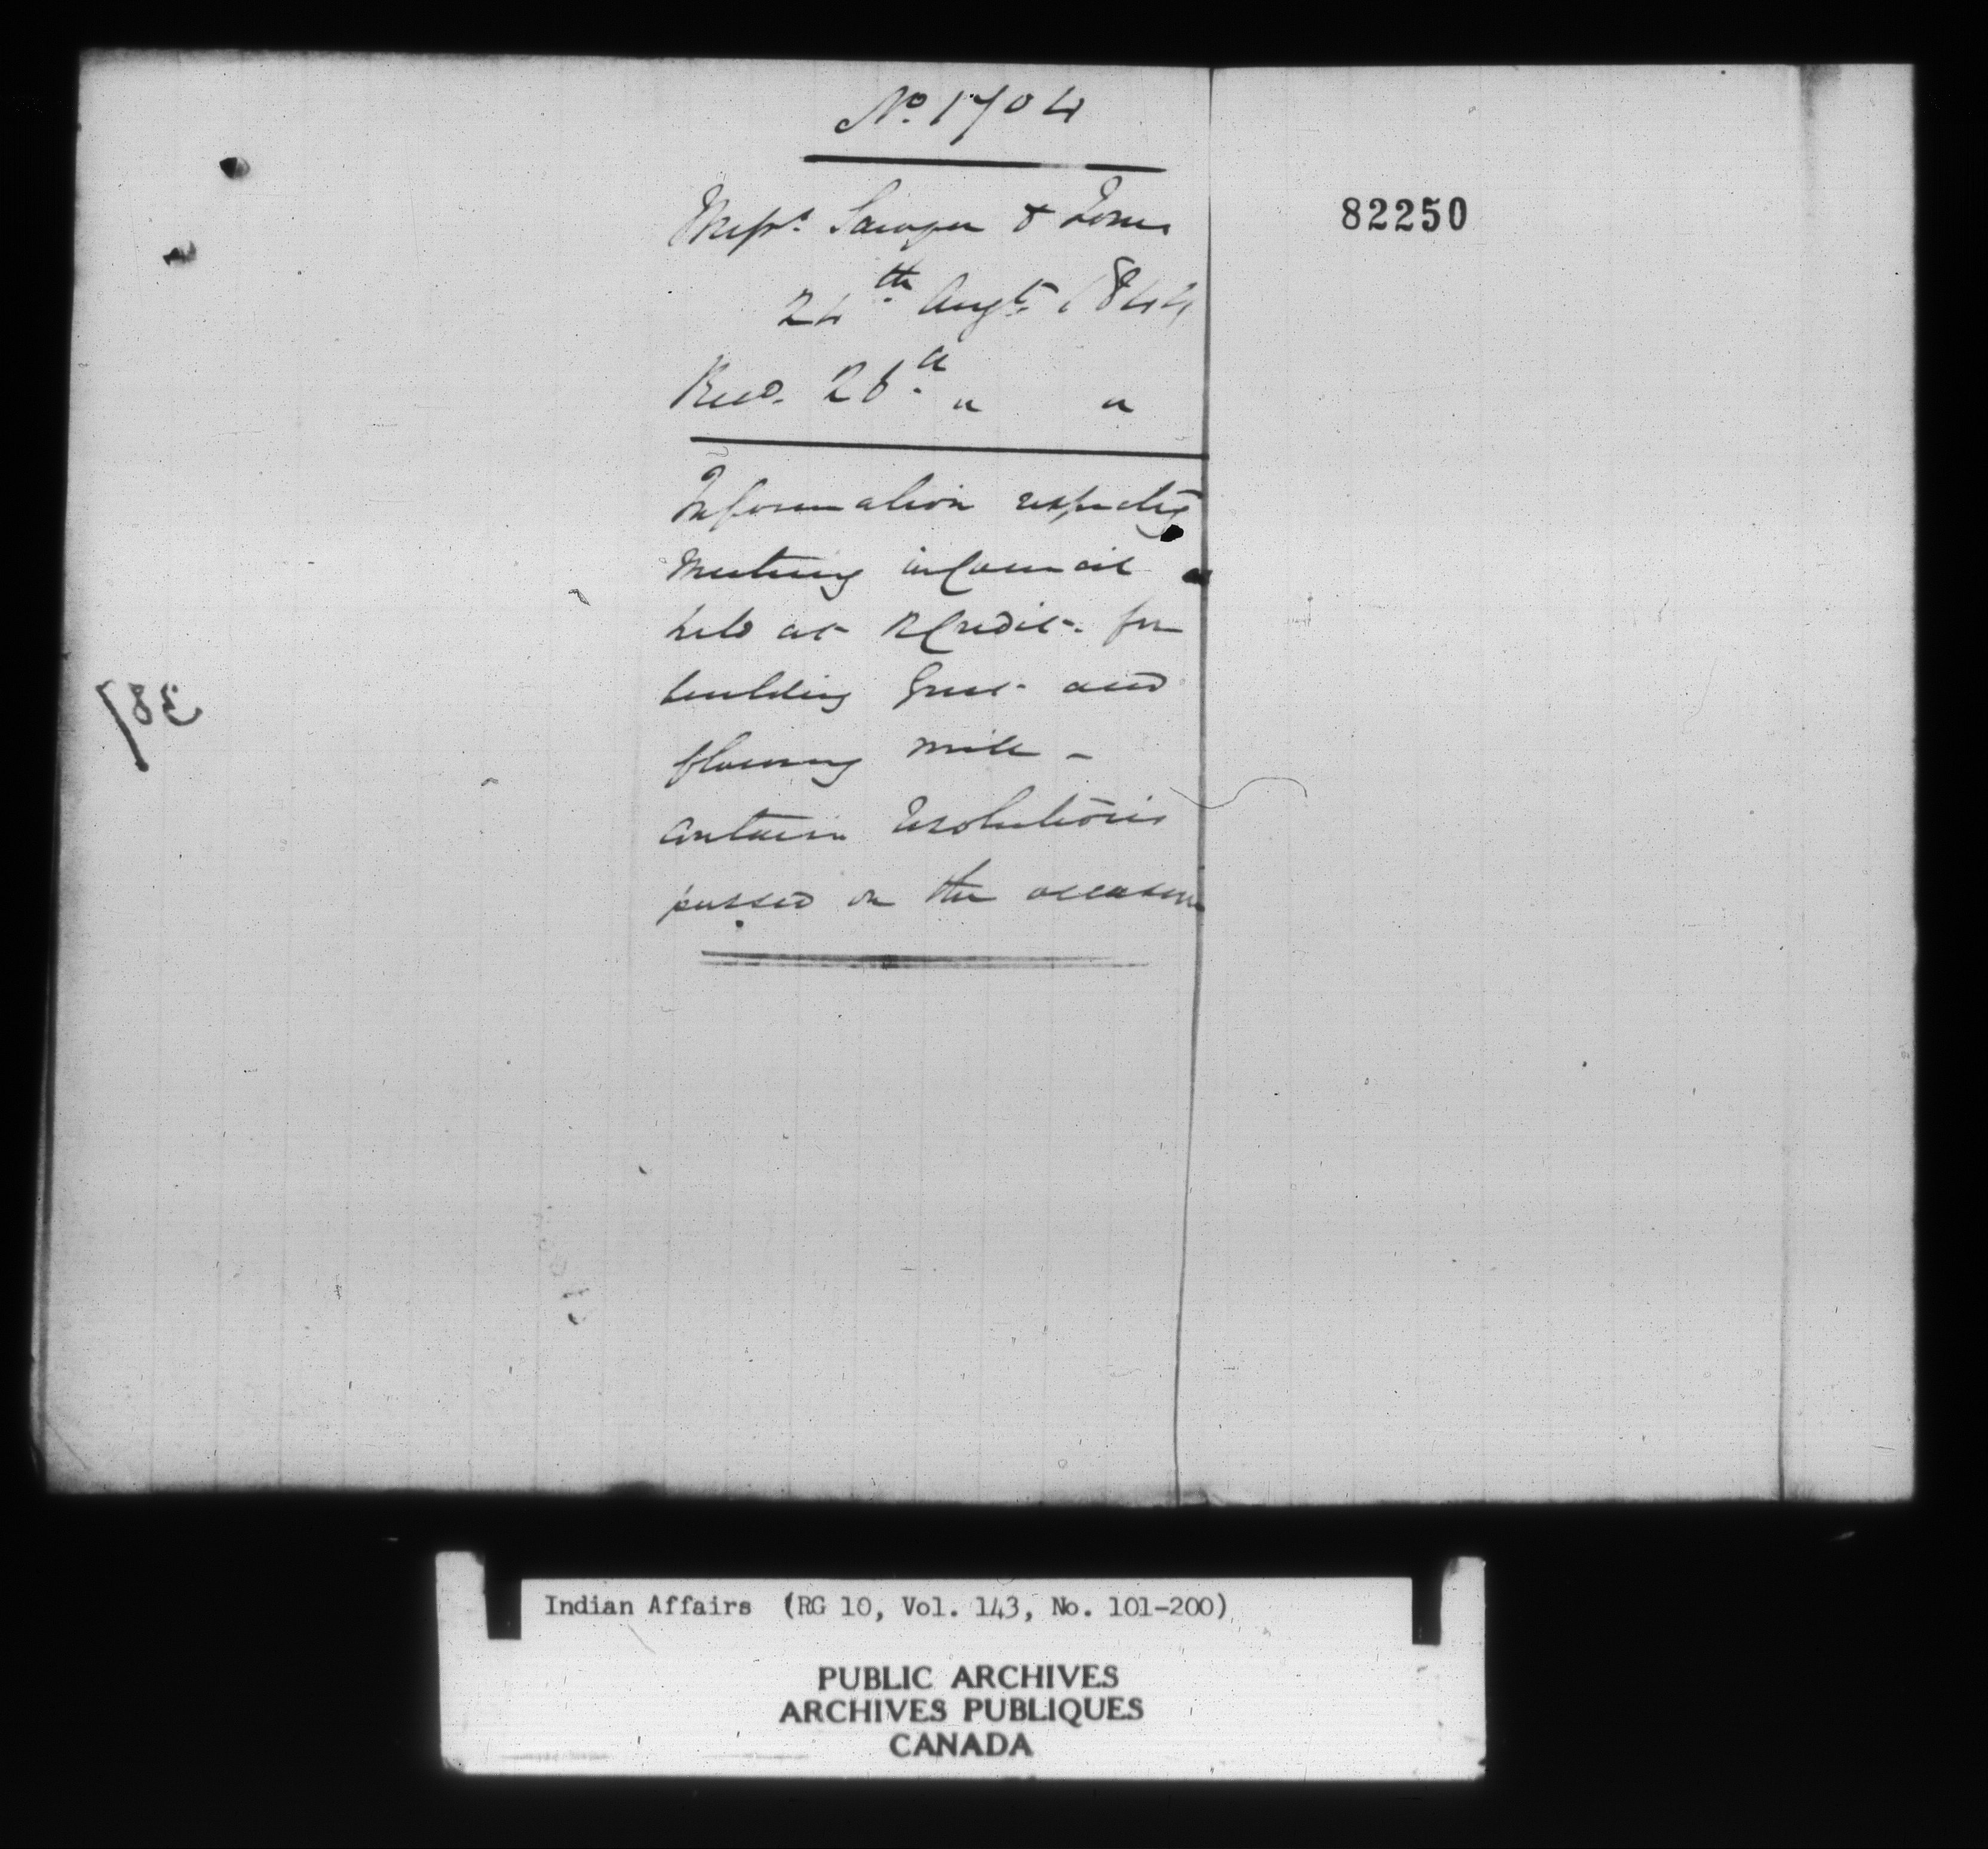 No. 1704
Messrs. Sawyer & Jones
24th Augt. 1844
Recd. 26th " "
Information respecting
Meeting in Council
held at R Credit. for
building Grist and
flouring mill -
contain Resolutions
passed on the occasion
82250
38/
Indian Affairs (RG 10, Vol. 143, No. 101-200)
PUBLIC ARCHIVES
ARCHIVES PUBLIQUES
CANADA